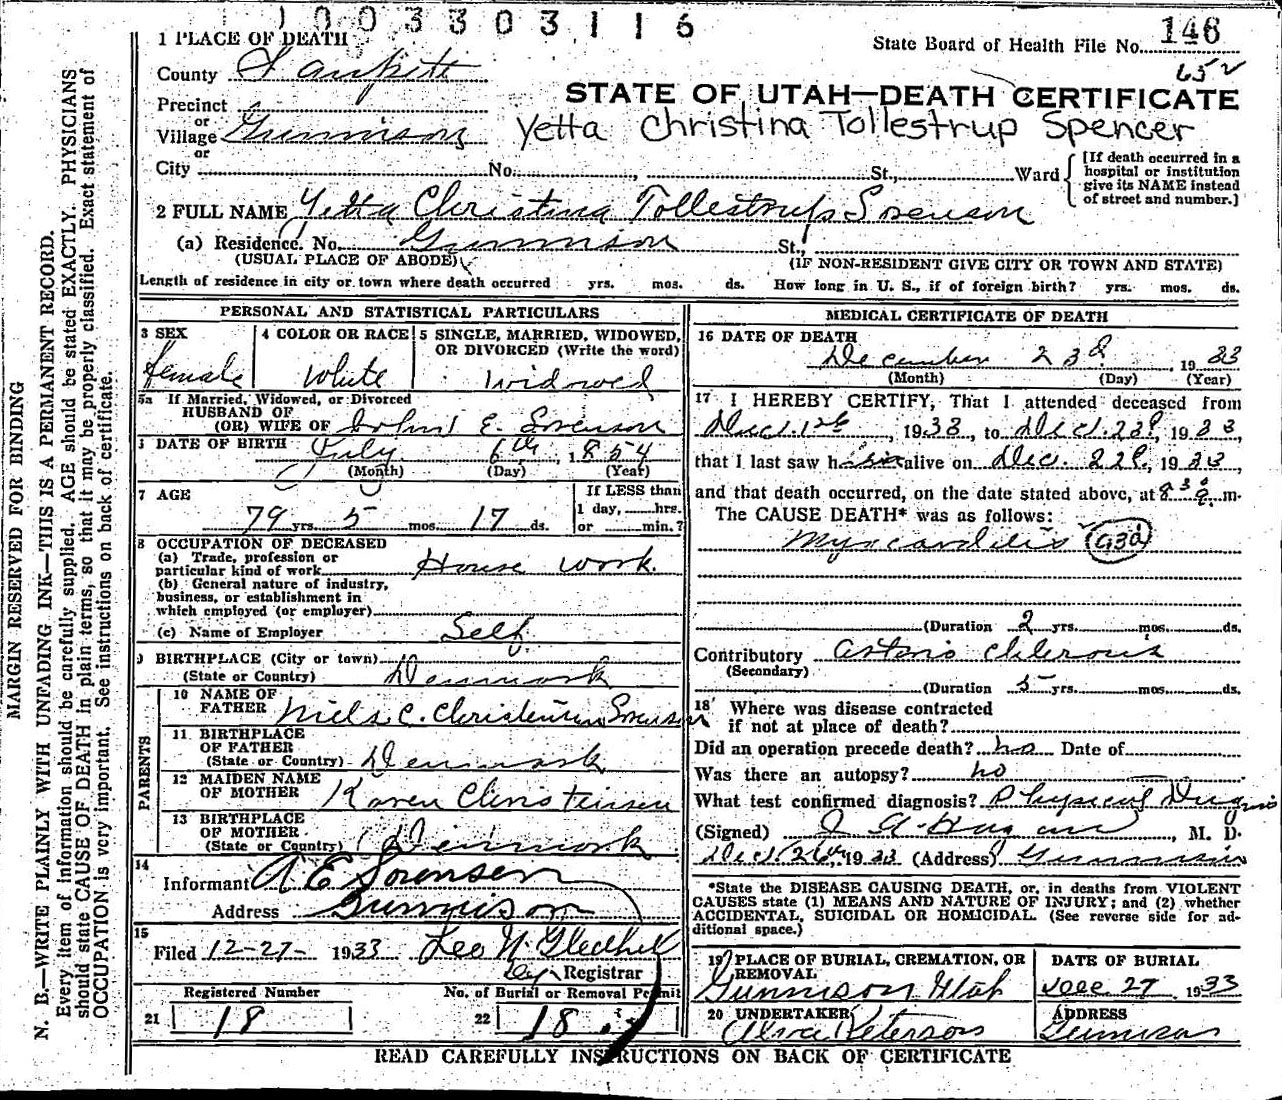 1003303116
146
1 PLACE OF DEATH
State Board of Health File No.
652
County Sanpete
STATE OF UTAH—DEATH CERTIFICATE
Precinct
or
Village Gunnison
Yetta Christina Tollestrup Spencer
or
City No. , St., Ward
[If death occurred in a
hospital or institution
give its NAME instead
of street and number.]
2 FULL NAME Yetta Christina Tollestrup Sorenson
(a) Residence. No. Gunnison St.,
(USUAL PLACE OF ABODE)
(IF NON-RESIDENT GIVE CITY OR TOWN AND STATE)
Length of residence in city or town where death occurred yrs. mos. ds. How long in U. S., if of foreign birth? yrs. mos. ds.
PERSONAL AND STATISTICAL PARTICULARS
3 SEX
female
4 COLOR OR RACE
White
5 SINGLE, MARRIED, WIDOWED,
OR DIVORCED (Write the word)
Widowed
5a If Married, Widowed, or Divorced
HUSBAND OF
(OR) WIFE OF John E. Sorenson
DATE OF BIRTH July 6th, 1854
(Month) (Day) (Year)
7 AGE
79 yrs. 5 mos. 17 ds.
If LESS than
1 day, hrs.
or min.?
8 OCCUPATION OF DECEASED
(a) Trade, profession or
particular kind of work House work.
(b) General nature of industry,
business, or establishment in
which employed (or employer)
(c) Name of Employer Self.
9 BIRTHPLACE (City or town)
(State or Country) Denmark
PARENTS
10 NAME OF
FATHER Niels C. Christensen Sorenson
11 BIRTHPLACE
OF FATHER
(State or Country) Denmark
12 MAIDEN NAME
OF MOTHER Karen Christensen
13 BIRTHPLACE
OF MOTHER
(State or Country) Denmark
14
Informant A E Sorensen
Address Gunnison
15
Filed 12-27- 1933 Leo N. Gledhill
Dep Registrar
Registered Number
21 18
No. of Burial or Removal Permit
22 18
MEDICAL CERTIFICATE OF DEATH
16 DATE OF DEATH
December 23d, 1933
(Month) (Day) (Year)
17 I HEREBY CERTIFY, That I attended deceased from
Dec. 1st, 1933, to Dec. 23d, 1933,
that I last saw h alive on Dec. 22d, 1933,
and that death occurred, on the date stated above, at m.
The CAUSE DEATH* was as follows:
Myocarditis 93d
(Duration 2 yrs. mos. ds.
Contributory
(Secondary)
(Duration 5 yrs. mos. ds.
18 Where was disease contracted
if not at place of death?
Did an operation precede death? no Date of
Was there an autopsy? no
What test confirmed diagnosis? Physical
(Signed) , M. D.
Dec. 26th, 1933 (Address) Gunnison
*State the DISEASE CAUSING DEATH, or, in deaths from VIOLENT
CAUSES state (1) MEANS AND NATURE OF INJURY; and (2) whether
ACCIDENTAL, SUICIDAL OR HOMICIDAL. (See reverse side for ad-
ditional space.)
19 PLACE OF BURIAL, CREMATION, OR
REMOVAL
Gunnison Utah
DATE OF BURIAL
Dec 27 1933
20 UNDERTAKER
Peterson
ADDRESS
Gunnison
READ CAREFULLY INSTRUCTIONS ON BACK OF CERTIFICATE
MARGIN RESERVED FOR BINDING
N. B.—WRITE PLAINLY WITH UNFADING INK—THIS IS A PERMANENT RECORD.
Every item of information should be carefully supplied. AGE should be stated EXACTLY. PHYSICIANS
should state CAUSE OF DEATH in plain terms, so that it may be properly classified. Exact statement of
OCCUPATION is very important. See instructions on back of certificate.